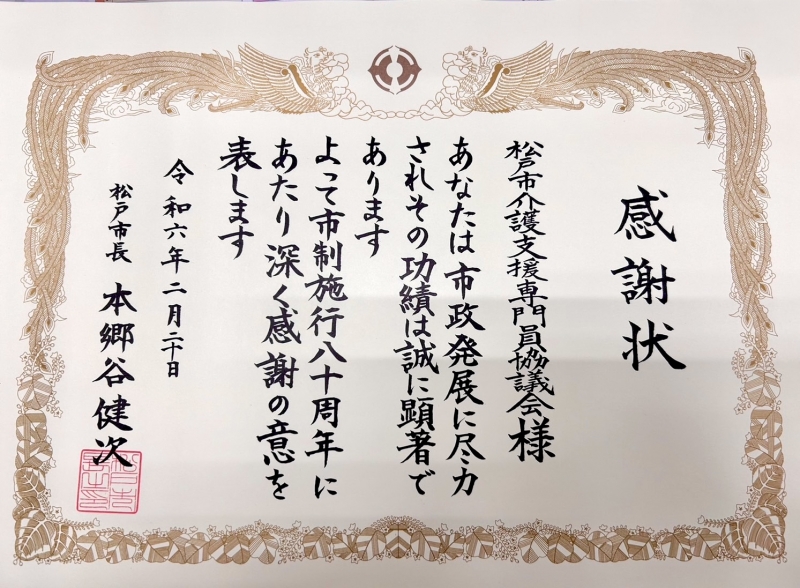 感謝状
松戸市介護支援専門員協議会様
あなたは市政発展に尽力
されその功績は誠に顕著で
あります
よって市制施行八十周年に
あたり深く感謝の意を
表します
令和六年二月二十日
松戸市長 本郷谷健次